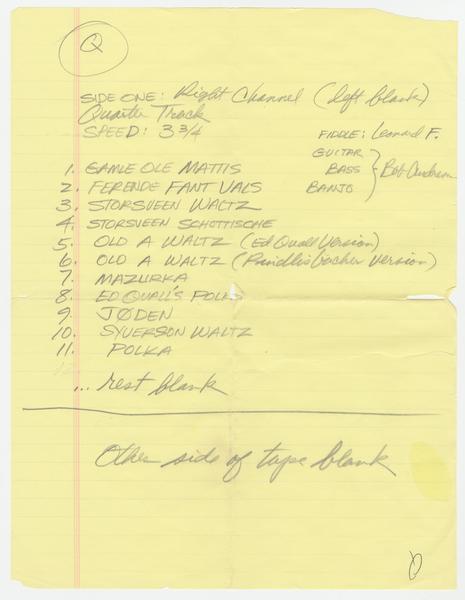 Q
SIDE ONE: Right Channel (left blank)
Quarter Track
SPEED: 3 3/4
FIDDLE: Leonard F.
GUITAR
BASS } Bob Anderson
BANJO
1. GAMLE OLE MATTIS
2. FERENDE FANT VALS
3. STORSVEEN WALTZ
4. STORSVEEN SCHOTTISCHE
5. OLD A WALTZ (Ed Quall Version)
6. OLD A WALTZ (Rindlisbacher Version)
7. MAZURKA
8. ED QUALL'S POLKA
9. JØDEN
10. SYVERSON WALTZ
11. POLKA
... rest blank
Other side of tape blank